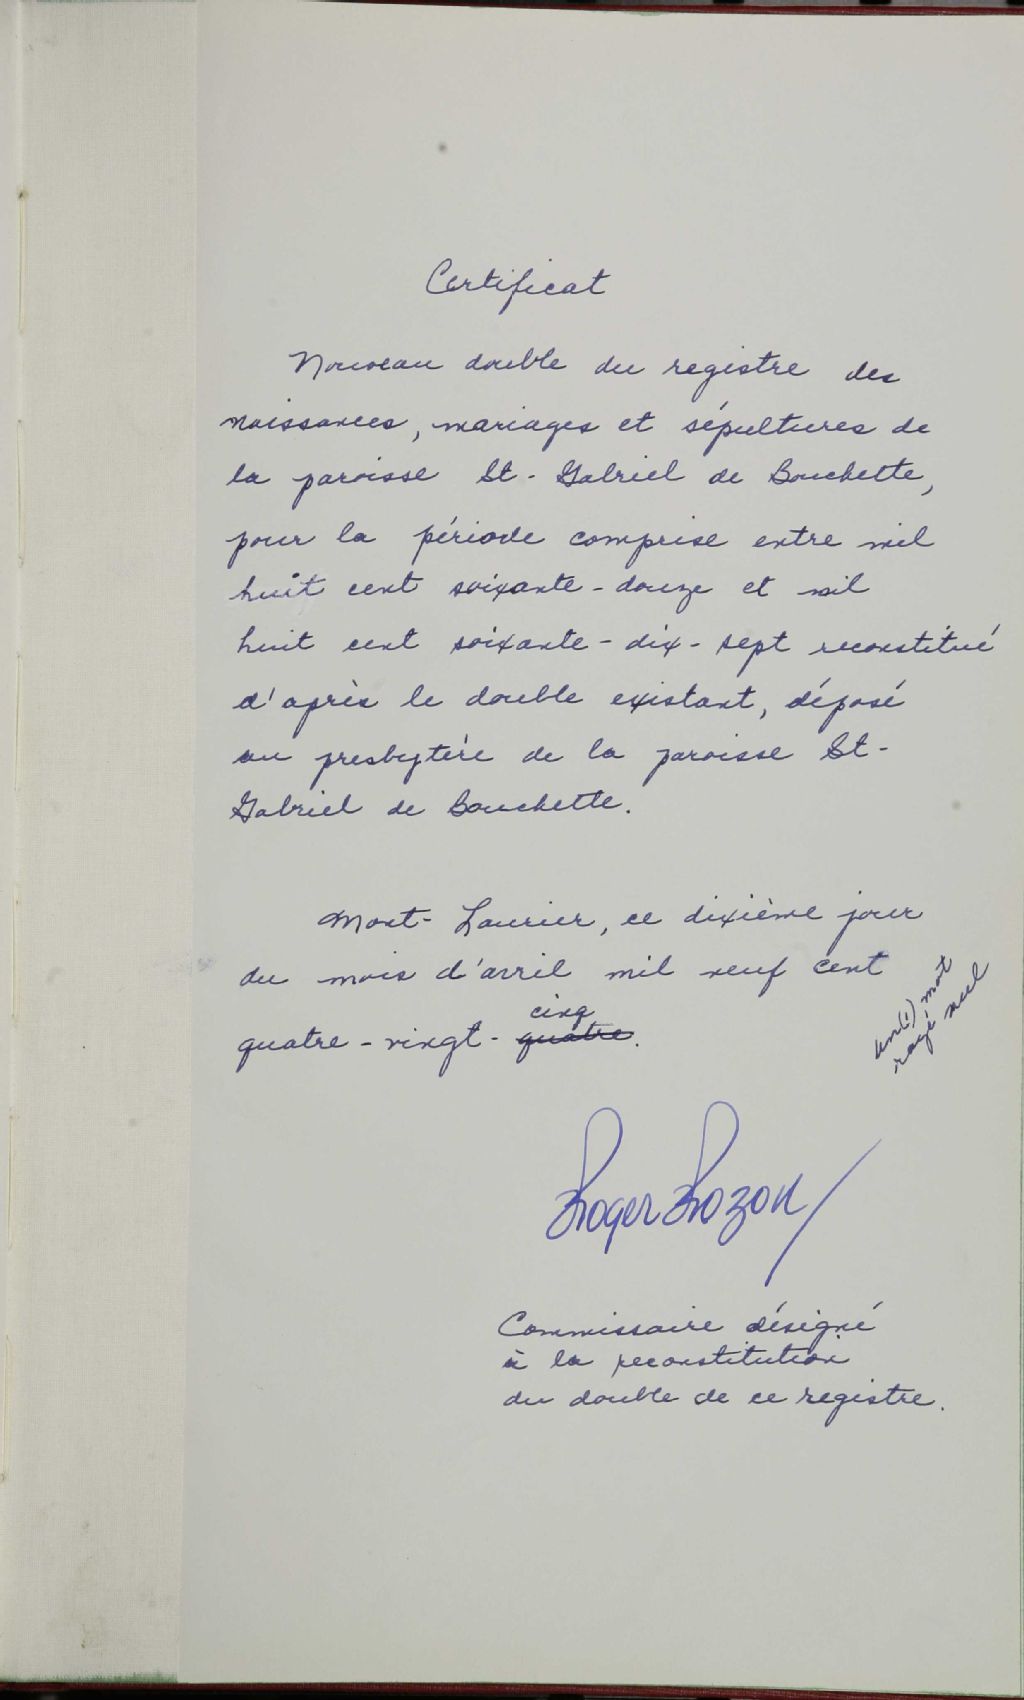 Certificat
Nouveau double du registre des
naissances, mariages et sépultures de
la paroisse St-Gabriel de Bouchette,
pour la période comprise entre mil
huit cent soixante-douze et mil
huit cent soixante-dix-sept reconstitué
d'après le double existant, déposé
au presbytère de la paroisse St-
Gabriel de Bouchette.
Mont-Laurier, ce dixième jour
du mois d'avril mil neuf cent
cinq
quatre-vingt-quatre.
un(1) mot
rayé nul
Roger Rozon
Commissaire désigné
à la reconstitution
du double de ce registre.